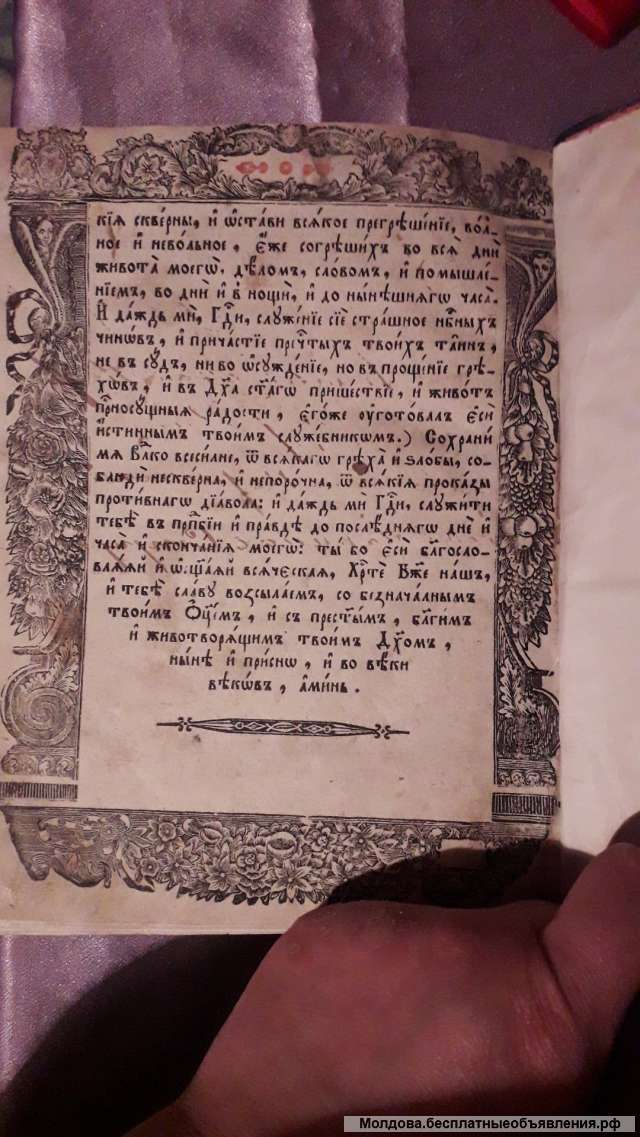 кїѧ скве́рны, и҆ ѡ҆ста́ви всѧ́кое прегрѣше́нїе, во́л-
ное и҆ нево́льное, є҆́же согрѣши́хъ во всѧ̀ дни̑
живота̀ моегѡ̀. дѣ́ломъ, сло́вомъ, и҆ помышле́-
нїемъ, во днѝ и҆ в̾ нощѝ, и҆ до ны́нѣшнѧгѡ часа̀.
И҆ да́ждь мѝ, Гдⷭ҇и, служе́нїе сїѐ стра́шное нбⷭ҇ныхъ
чинѡ́въ, и҆ прича́стїе пречⷭ҇тыхъ твои́хъ та́инъ,
не въ сꙋ́дъ, ни во ѡ҆сꙋжде́нїе, но въ проще́нїе грѣ-
хѡ́въ, и҆ въ Дх҃а ст҃а́гѡ прише́ствїе, и҆ живо́тъ
присносꙋ́щныѧ ра́дости, є҆го́же ᲂу҆гото́валъ є҆сѝ
и҆́стиннымъ твои́мъ слꙋже́бникѡмъ.) Сохранѝ
мѧ̀ Влⷣко всеси́лне, ѿ всѧ́кагѡ грѣха̀ и҆ ѕло́бы, со-
блюдѝ нескве́рна, и҆ непоро́чна, ѿ всѧ́кїѧ прока́зы
проти́внагѡ дїа́вола: и҆ да́ждь мѝ Гдⷭ҇и, слꙋжи́ти
тебѣ̀ въ прпⷣбїи и҆ пра́вдѣ до послѣ́днѧгѡ днѐ и҆
часа̀ и҆ сконча́нїѧ моегѡ̀: ты́ бо є҆сѝ бл҃госло-
влѧ́ѧй и҆ ѡ҆сщ҃а́ѧй всѧ́ческаѧ, Хрⷭ҇тѐ Бж҃е на́шъ,
и҆ тебѣ̀ сла́вꙋ возсыла́емъ, со безнача́льнымъ
твои́мъ Оц҃е́мъ, и҆ съ престⷭ҇ы́мъ, бл҃ги́мъ
и҆ животворѧ́щимъ твои́мъ Дх҃омъ,
ны́нѣ и҆ при́снѡ, и҆ во вѣ́ки
вѣкѡ́въ, а҆ми́нь.
Молдова.бесплатныеобъявления.рф